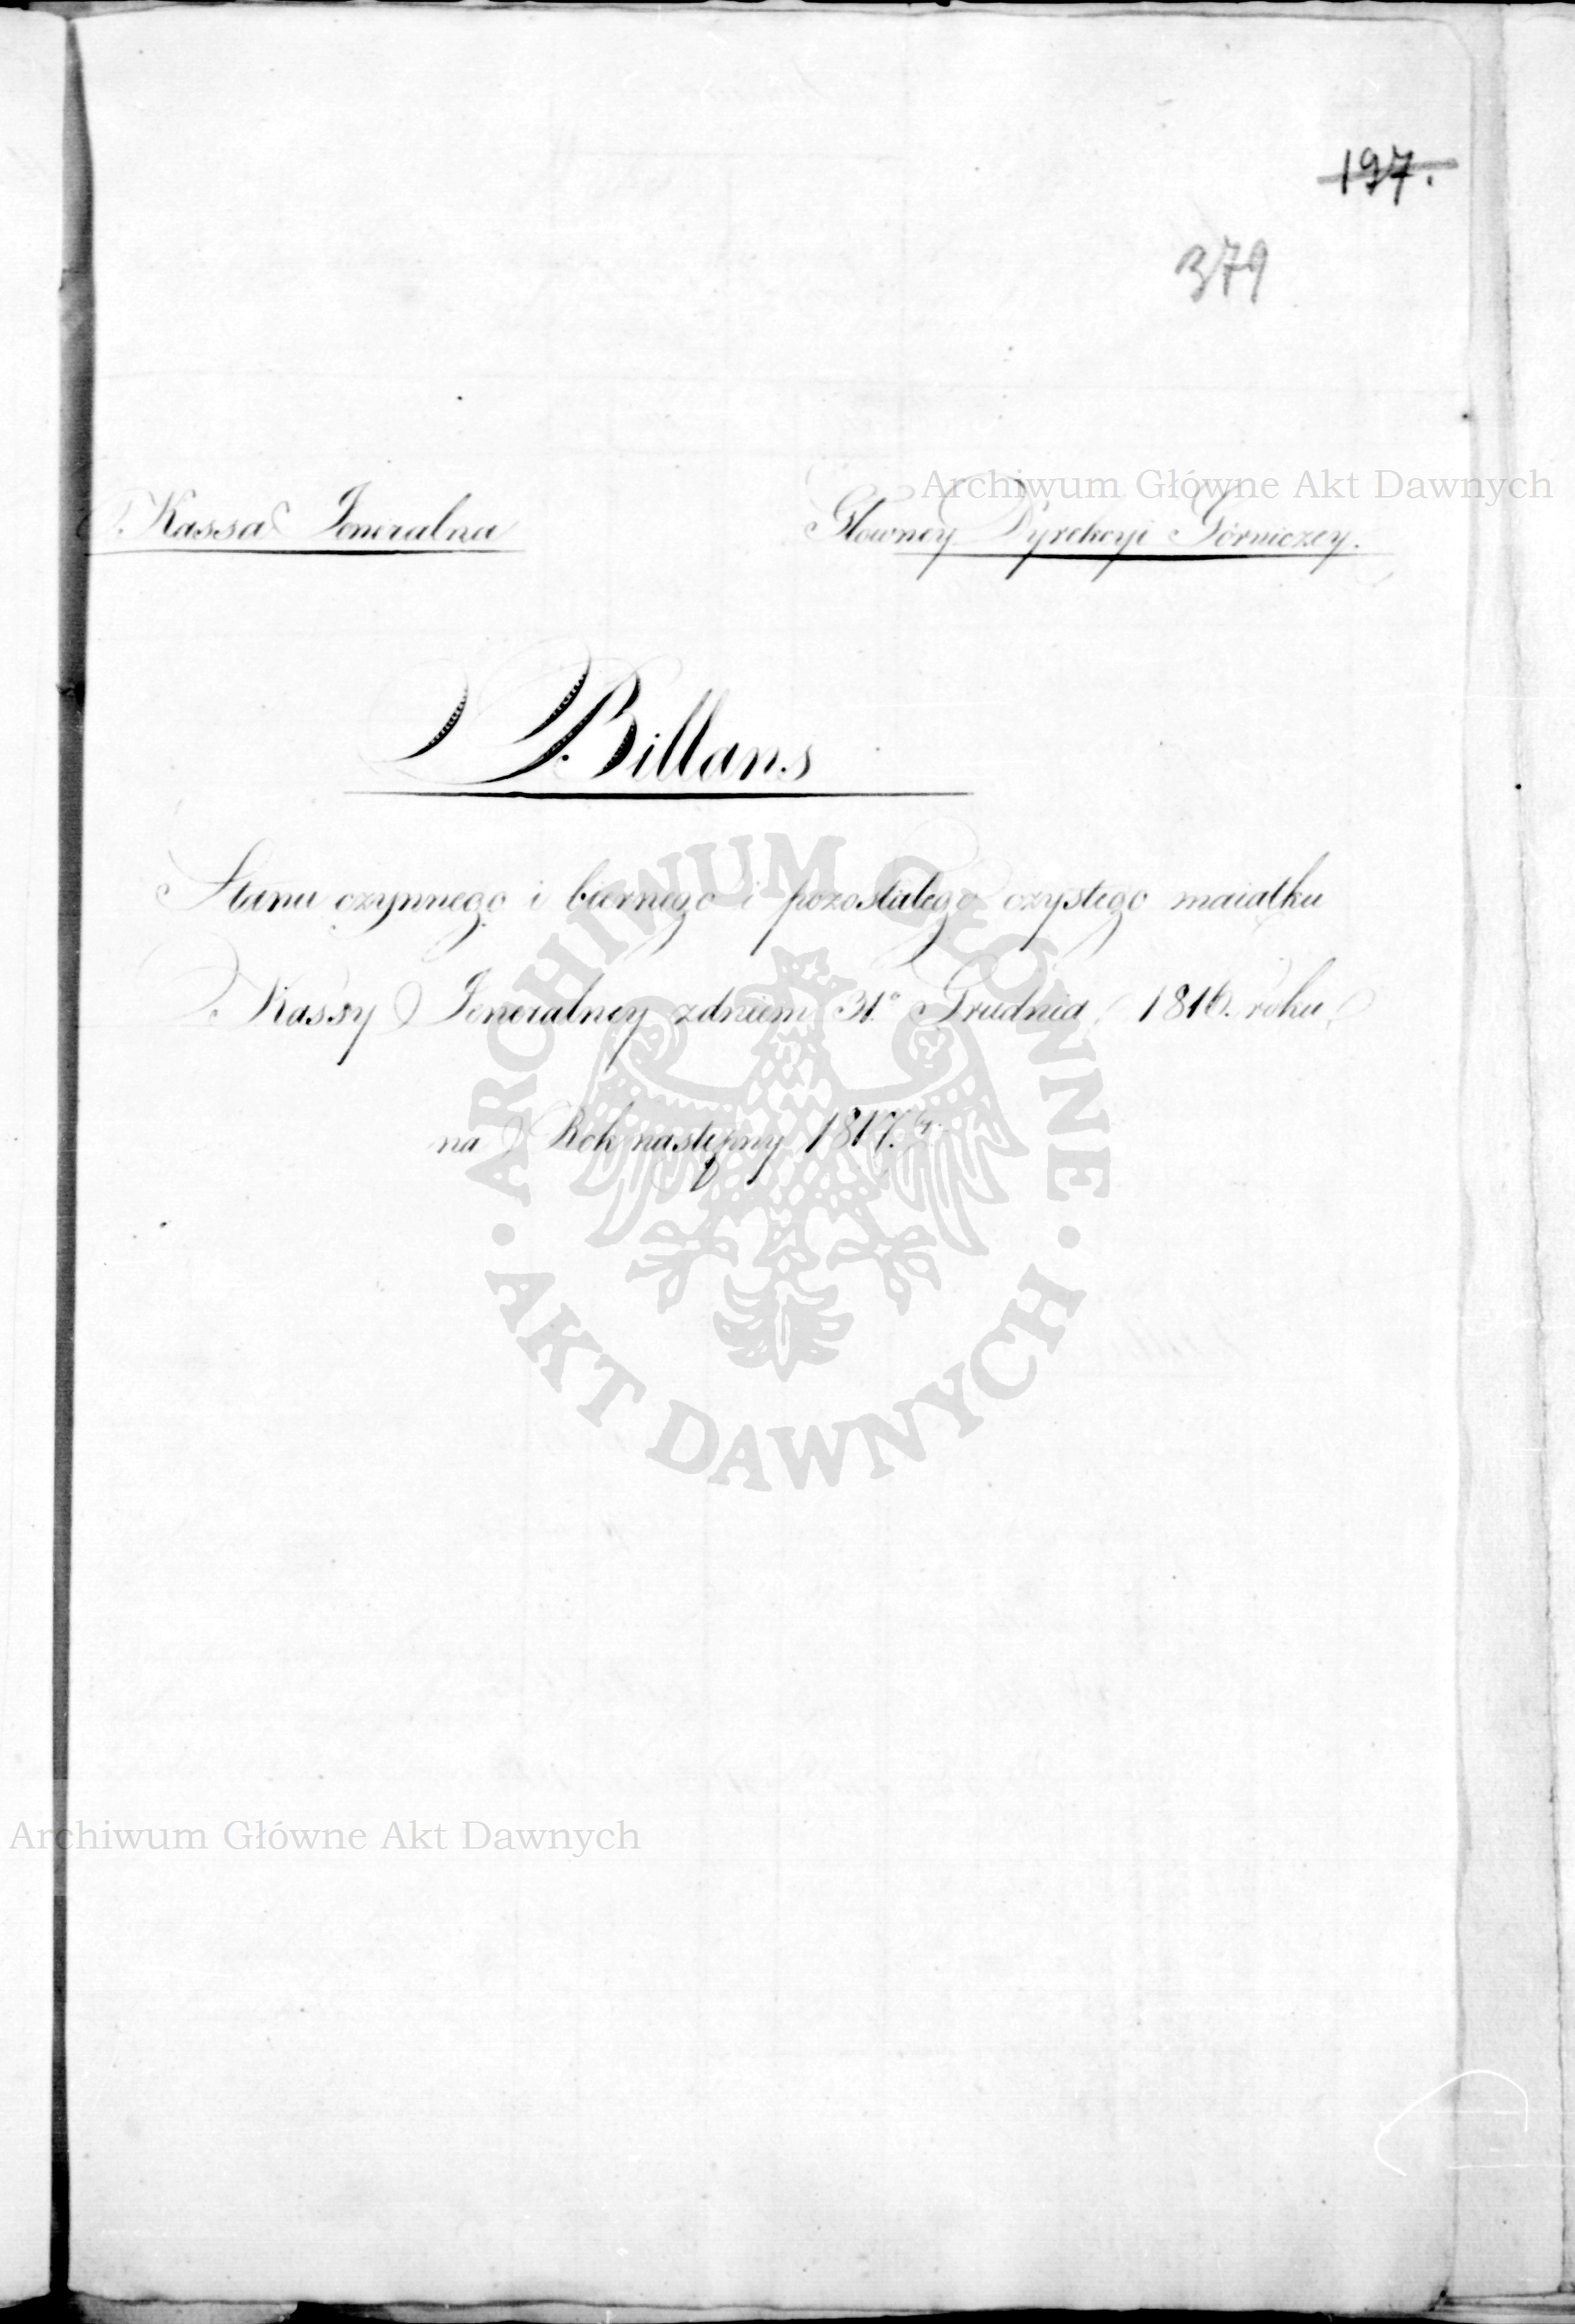 197.
379
Archiwum Główne Akt Dawnych
Kassa Jeneralna Głowney Dyrekcyi Górniczey.
Billans
Stanu czynnego i biernego i pozostałego czystego maiątku
Kassy Jeneralney z dniem 31º Grudnia 1816. roku
na Rok następny 1817.
ARCHIWUM GŁÓWNE
AKT DAWNYCH
Archiwum Główne Akt Dawnych